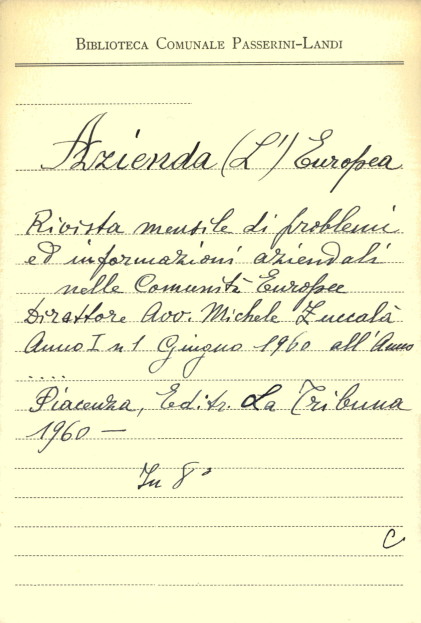 BIBLIOTECA COMUNALE PASSERINI-LANDI
Azienda (L') Europea
Rivista mensile di problemi
ed informazioni aziendali
nelle Comunità Europee
Direttore Avv. Michele Zuccalà
Anno I n 1 Giugno 1960 all'Anno
....
Piacenza, Editr. La Tribuna
1960 —
In 8°
C